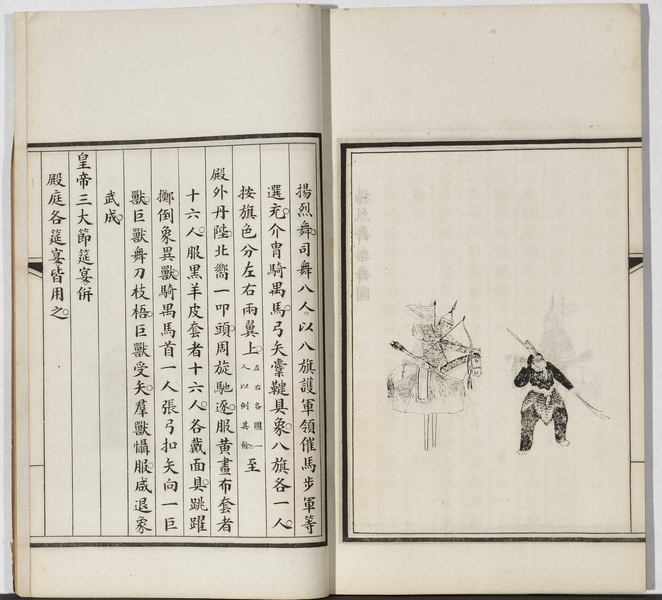 揚烈舞。司舞八人。以八旗護軍領催馬步軍等
選充。介冑騎禺馬。弓矢櫜鞬具。象八旗各一人。
按旗色分左右兩翼上。左右各圖一人以例其餘。至
殿外丹陛北嚮一叩頭。周旋馳逐。服黃畫布套者
十六人。服黑羊皮套者十六人。各戴面具。跳躍
擲倒。象異獸。騎禺馬首一人張弓扣矢向一巨
獸。巨獸舞刀枝梧。巨獸受矢。羣獸懾服。咸退。象
武成。
皇帝三大節筵宴併
殿庭各筵宴皆用之。